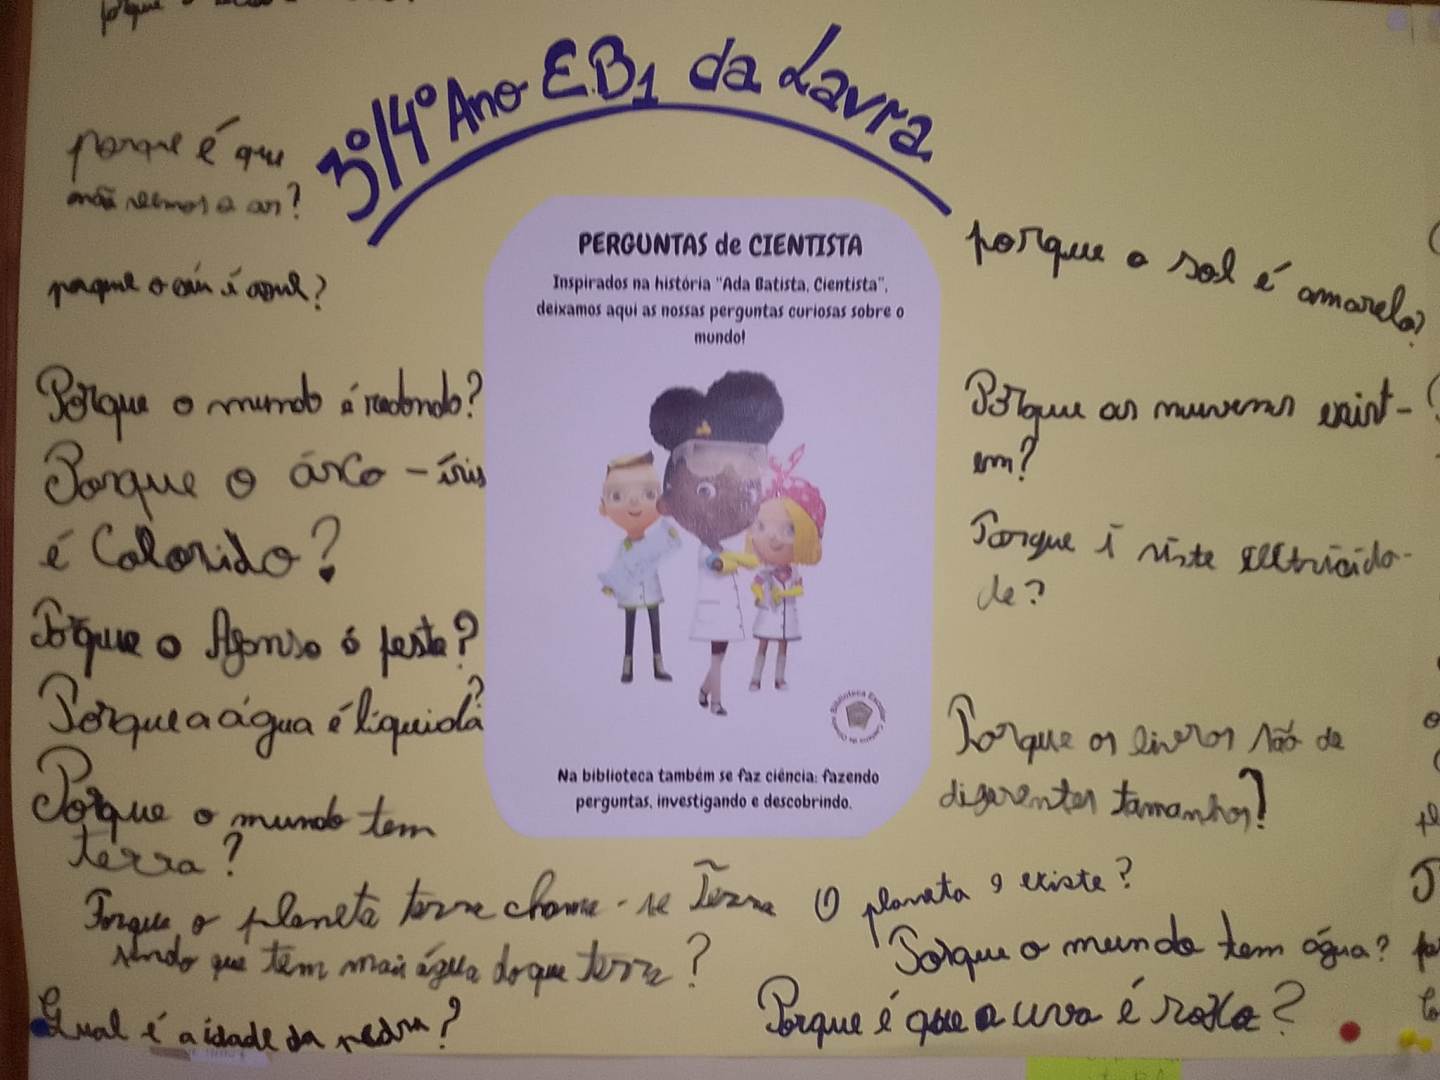 3º/4º Ano EB1 da Lavra
porque é que
não vemos o ar?
porque o céu é azul?
Porque o mundo é redondo?
Porque o árco-íris
é Colorido?
Porque o Afonso é peste?
Porque a água é líquida?
Porque o mundo tem
terra?
Porque o planeta terra chama-se Terra
sendo que tem mais água do que terra?
Qual é a idade da
PERGUNTAS de CIENTISTA
Inspirados na história "Ada Batista, Cientista",
deixamos aqui as nossas perguntas curiosas sobre o
mundo!
Biblioteca Escolar
Na biblioteca também se faz ciência: fazendo
perguntas, investigando e descobrindo.
porque o sol é amarelo?
Porque as nuvens exist-
em?
Porque i xiste eletricida-
de?
Porque os livros são de
diferentes tamanhos?
O planeta 9 existe?
Porque o mundo tem água?
Porque é que a uva é roxa?